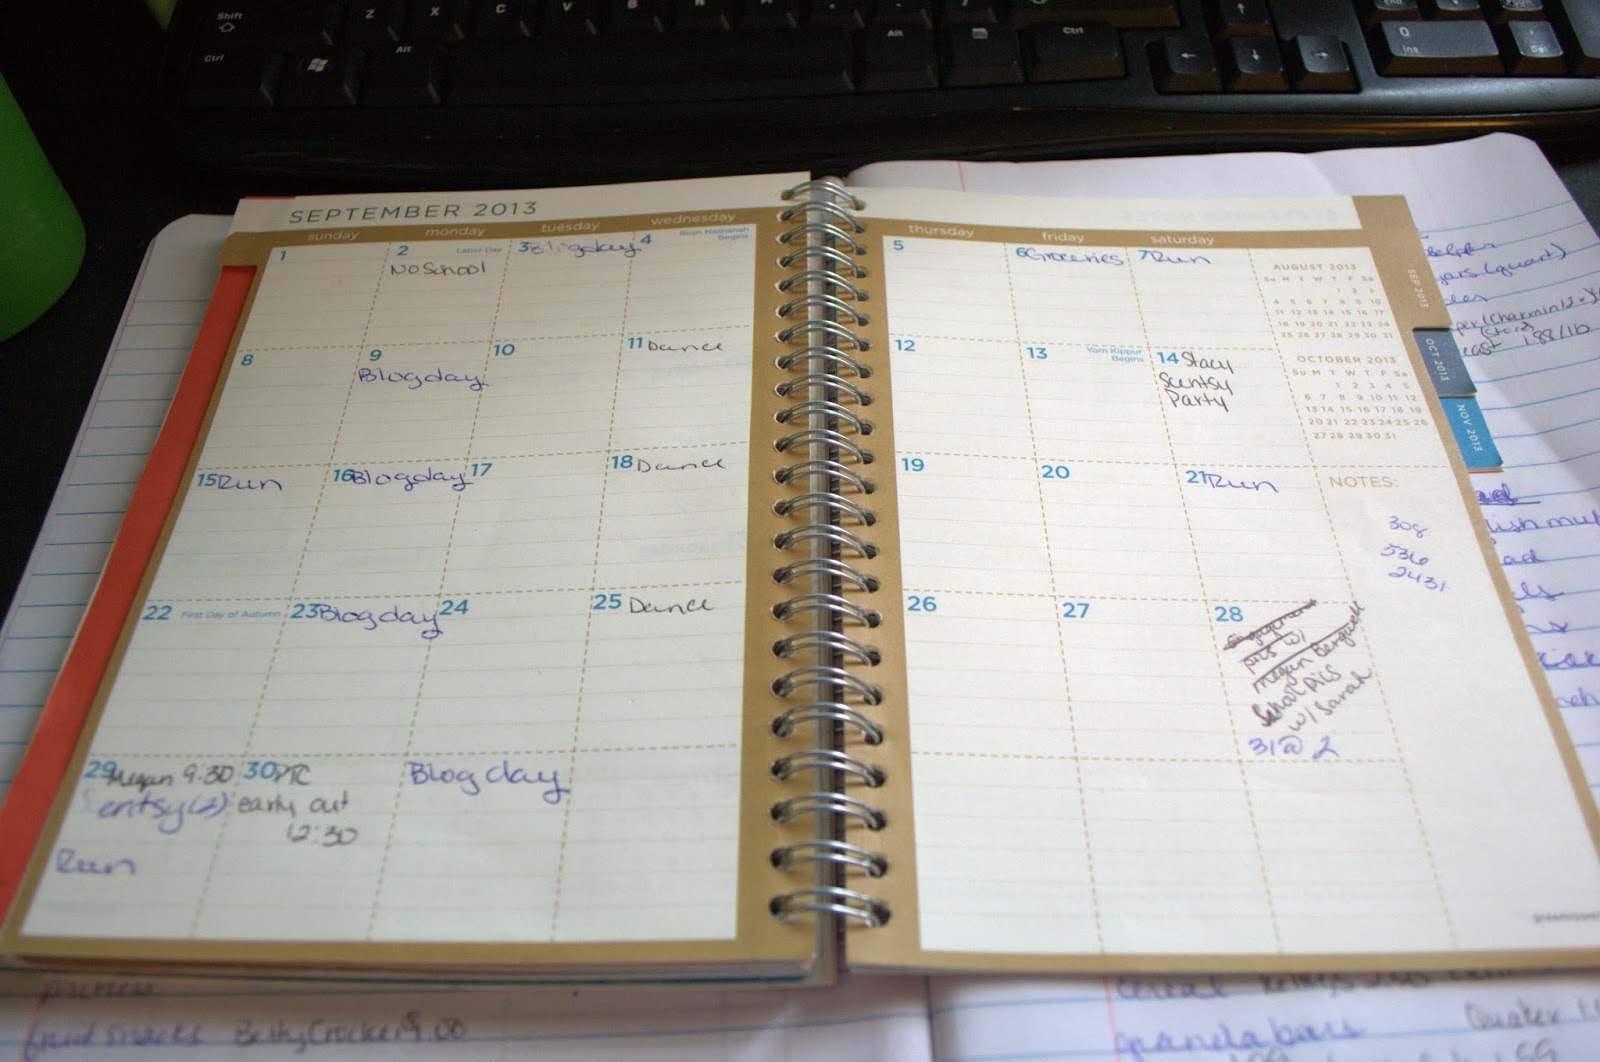 Shift
Z X C V B N M
Ctrl
Alt
Alt
Ctrl
0
Ins
Del
SEPTEMBER 2013
sunday monday tuesday wednesday
1
2 Labor Day
No School
3 Blogday
4 Rosh Hashanah
Begins
8
9
Blogday
10
11 Dance
15 Run
16 Blogday
17
18 Dance
22 First Day of Autumn
23 Blogday
24
25 Dance
29 Megan 9:30
Sentsy(2)
Run
30 PTC
early out
12:30
Blogday
thursday friday saturday
5
6 Groceries
7 Run
12
13 Yom Kippur
Begins
14 Stacy
Scentsy
Party
19
20
21 Run
26
27
28
pics w/
Megan
School Pics
w/ Sarah
31@ 2
AUGUST 2013
Su M T W T F Sa
1 2 3
4 5 6 7 8 9 10
11 12 13 14 15 16 17
18 19 20 21 22 23 24
25 26 27 28 29 30 31
OCTOBER 2013
Su M T W T F Sa
1 2 3 4 5
6 7 8 9 10 11 12
13 14 15 16 17 18 19
20 21 22 23 24 25 26
27 28 29 30 31
NOTES:
308
536
2431
SEP 2013
OCT 2013
NOV 2013
(quart)
(store)
1.88/lb
fruit snacks Betty Crocker
cereal
granola bars
Quaker